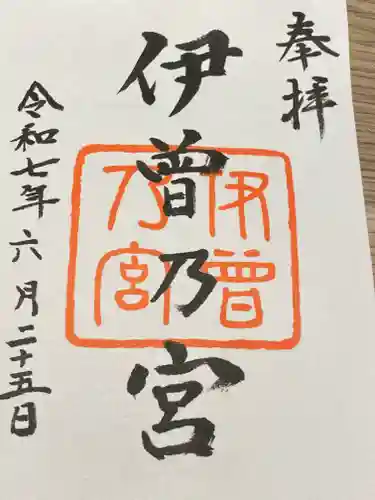 奉拝
伊曽乃宮
伊曽乃宮
令和七年六月二十五日